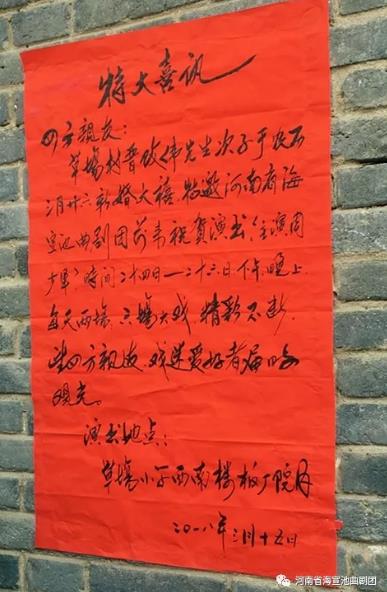 特大喜讯
四方親友：
草場村晋欣伟先生次子于农历
三月廿六新婚大禧，特邀河南省海
宣池曲剧团前来祝贺演出（主演周
少军）时间二十四日——二十六日，下午、晚上，
每天两場，六場大戏，精彩不断，
望四方親友，戏迷爱好者届时
观光。
演出地点：
草場小学西南楼板厂院内
二〇一八年三月十五日
河南省海宣池曲剧团